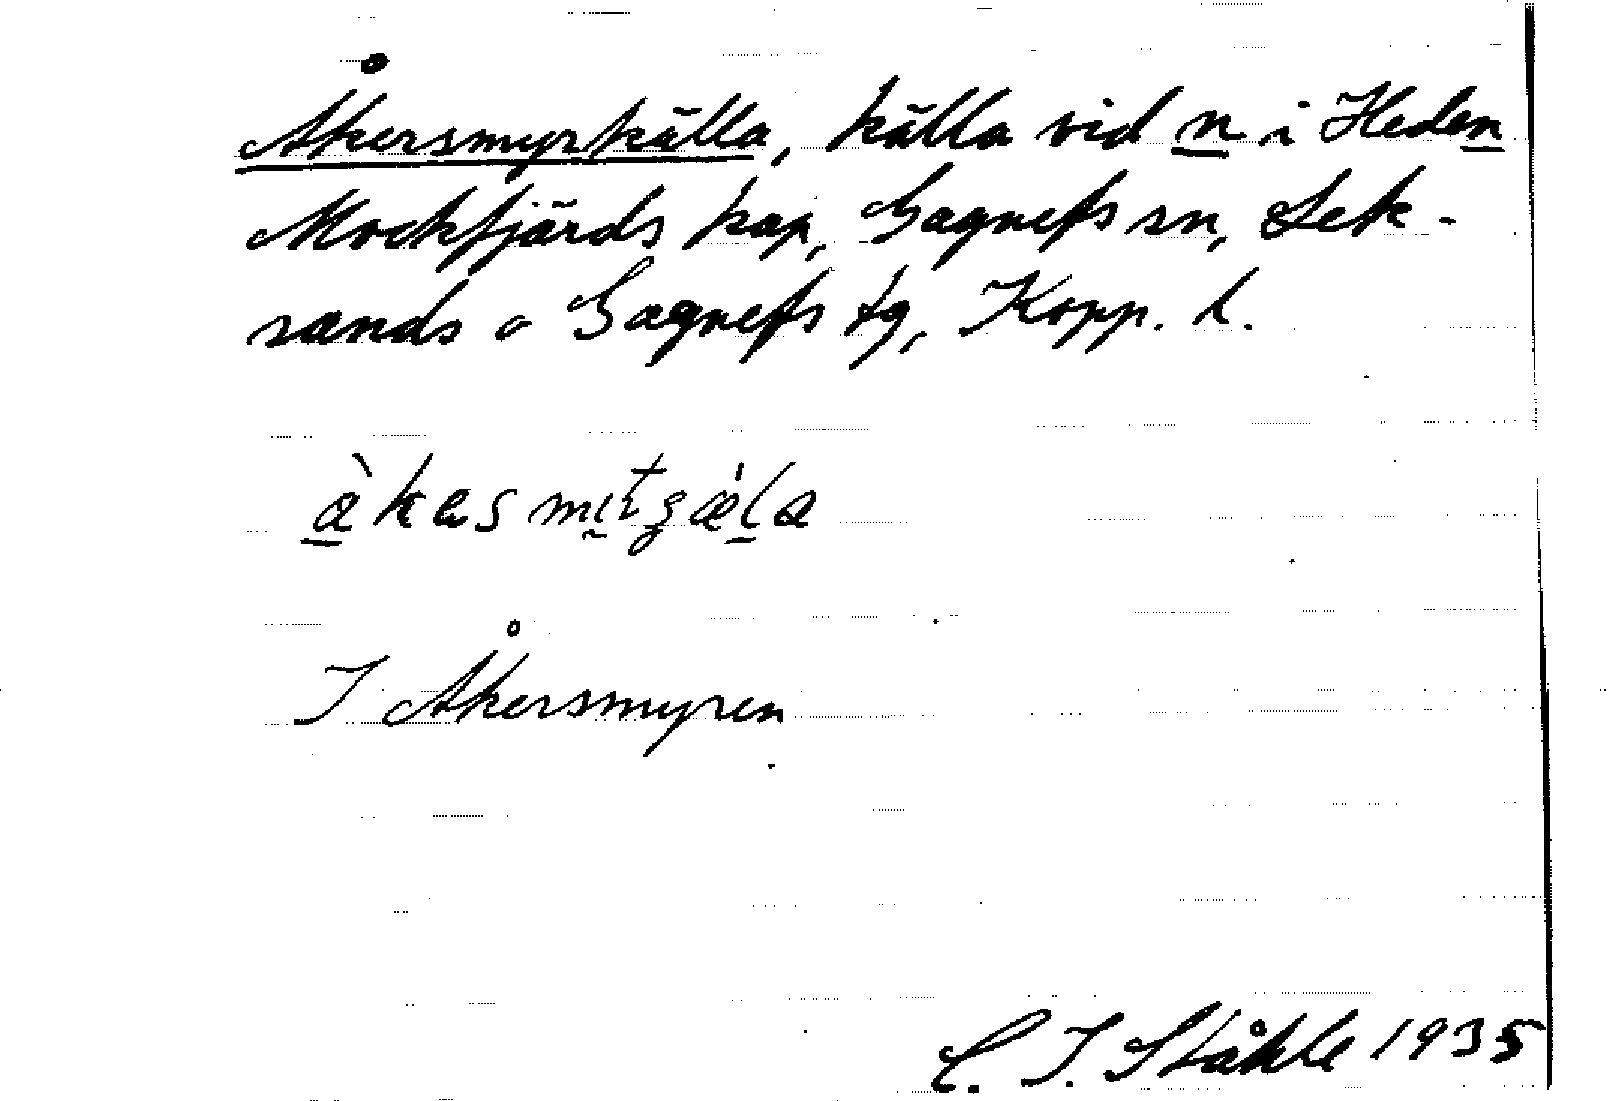 Åkersmyrkälla, källa vid n i Heden
Mockfjärds kap, Gagnefs sn, Lek-
sands o Gagnefs tg, Kopp. l.
I Åkersmyren
C. I. Ståhle 1935